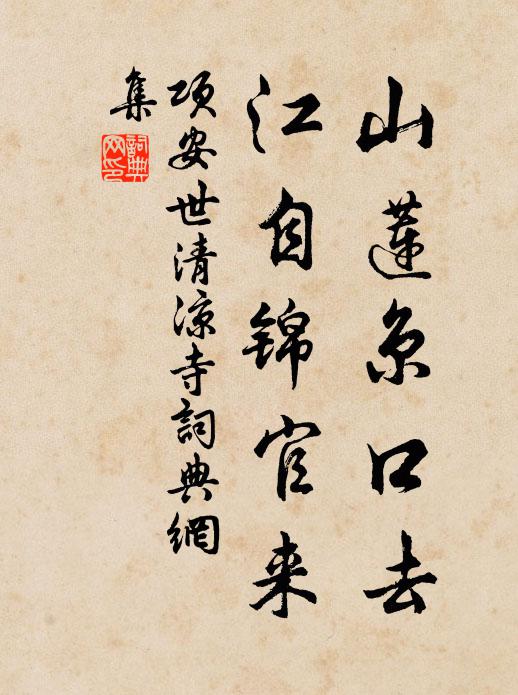 山蓮京口去
江自锦官来
项安世清凉寺詞典網
集
詞典
网印